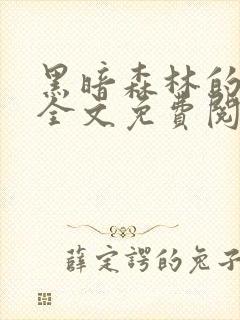 黑暗森林的
全文免費閱
薛定諤的兔子